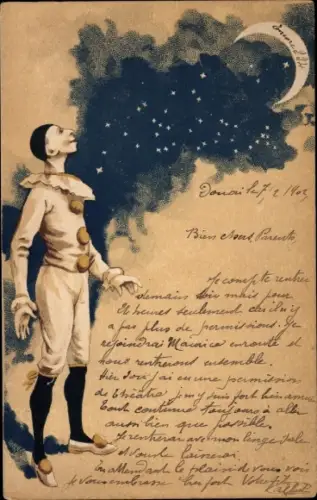 Douai le 7/2 1903
Bien chers Parents,
Je compte rentrer
demain soir mais pour
heures seulement car il n'y
a pas plus de permissions. Je
rejoindrai Maurice en route et
nous rentrerons ensemble.
Hier soir j'ai eu une permission
de théâtre je m'y suis fort bien amusé
Tout continue toujours à aller
aussi bien que possible.
Je rentrerai avec mon linge sale
et vous laisserai
En attendant le plaisir de vous voir
je vous embrasse bien fort Votre fils